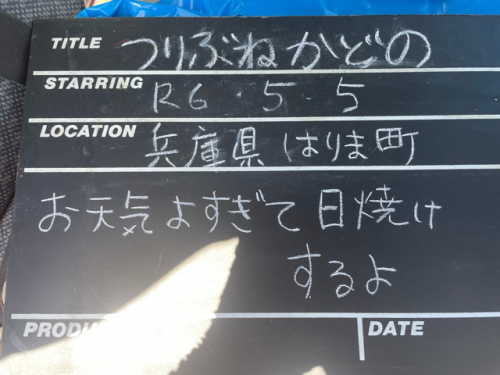 TITLE つりぶねかどの
STARRING R6.5.5
LOCATION 兵庫県はりま町
お天気よすぎて日焼け
するよ
DATE